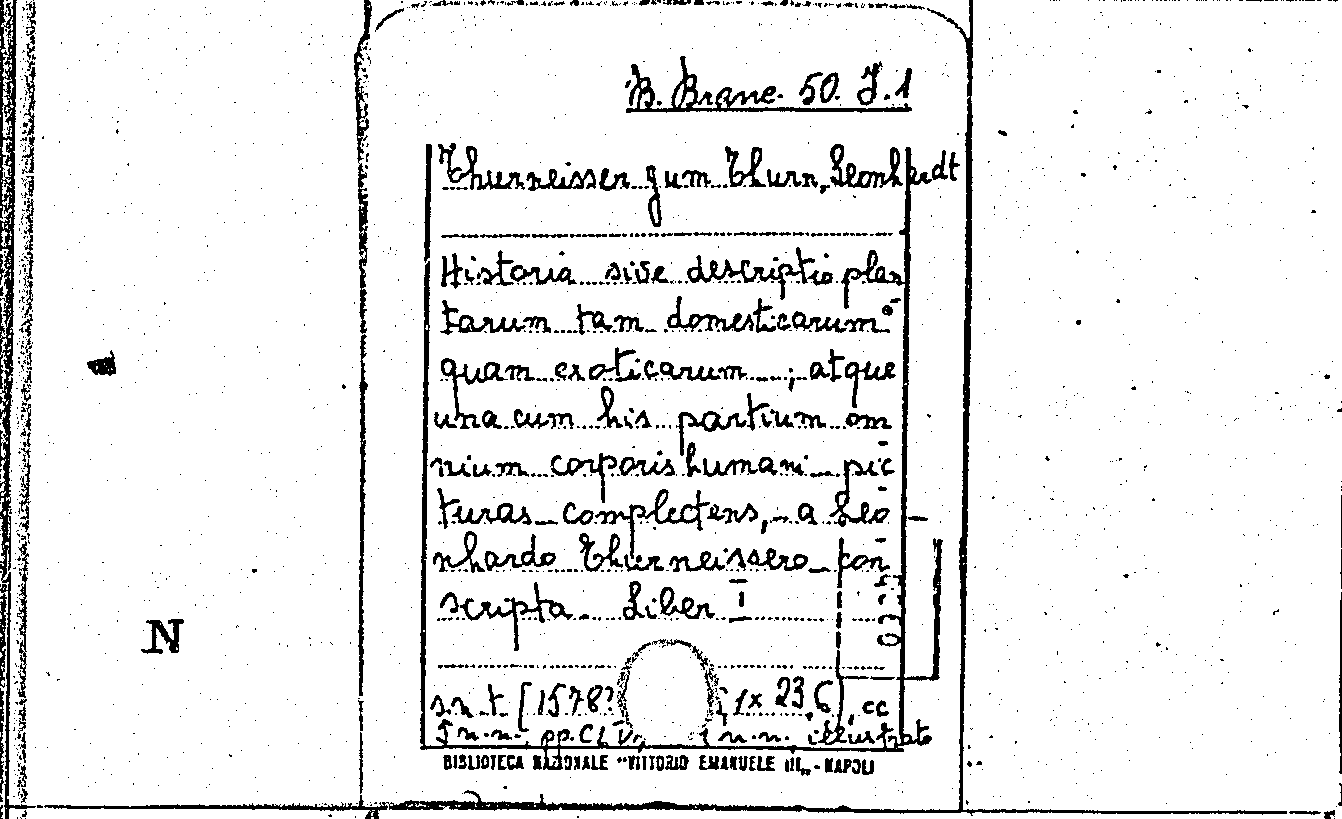 B. Branc. 50. J. 1
Thurneisser zum Thurn, Leonhardt
Historia sive descriptio plan
tarum tam domesticarum
quam exoticarum ; atque
una cum his partium om
nium corporis humani pic
turas complectens, a Leo-
nhardo Thurneissero con
scripta. Liber I
s.n.t. [1578? 1x 23,6), cc
n.n., pp. CLV, n.n., illustrato
BIBLIOTECA NAZIONALE "VITTORIO EMANUELE III" - NAPOLI
N